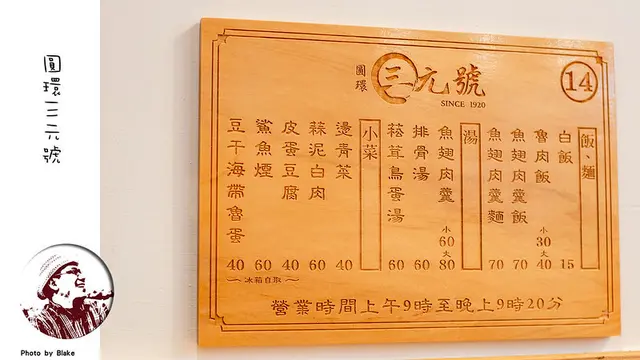 圓環三元號
圓環 三元號
SINCE 1920
14
飯、麵
白飯 15
魯肉飯 小 30 大 40
魚翅肉羹飯 70
魚翅肉羹麵 70
湯
魚翅肉羹 小 60 大 80
排骨湯 60
菘茸鳥蛋湯 60
小菜
燙青菜 40
蒜泥白肉 60
皮蛋豆腐 40
鯊魚煙 60
豆干海帶魯蛋 40
～冰箱自取～
營業時間上午9時至晚上9時20分
Photo by Blake